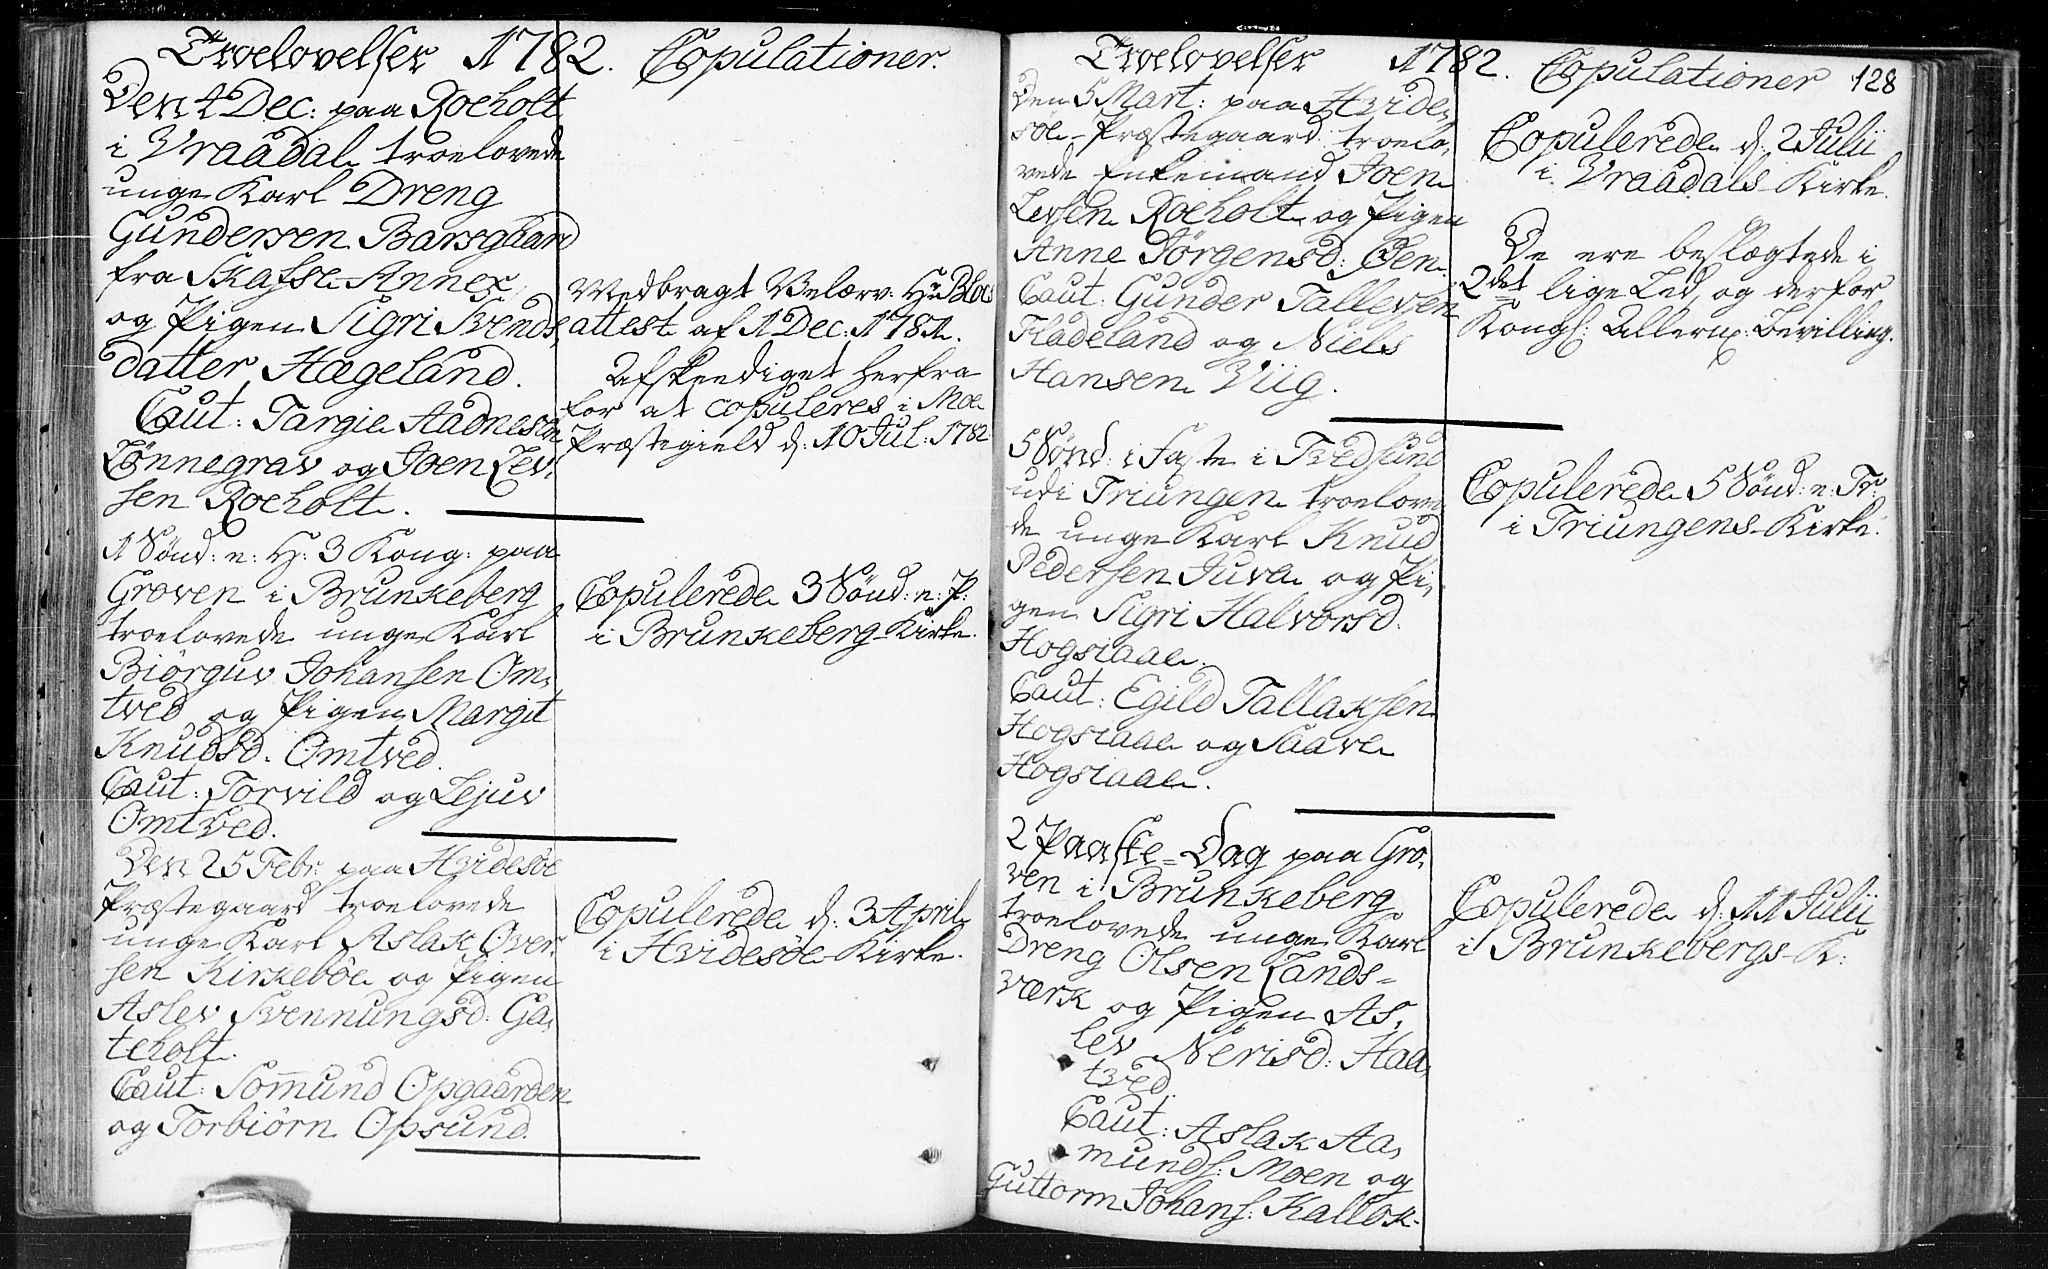 Troelovelser 1782. Copulationer.
Den 4 Dec: paa Roeholt
i Vraadal troelovede
unge Karl Dreng
Gundersen Barsgaard
fra Skafse-Annex,
og Pigen Sigri Svends
datter Hægeland.
Caut: Targie Aadnesøn
Lønnegrav og Joen Lev,
sen Roeholt.
Medbragt Velærv: Hr Blos
attest af 1 Dec: 1781.
Afskeediget herfra
for at copuleres i Moe
Præstegield d: 10 Jul: 1782
1 Sønd: n: H: 3 Kong: paa
Groven i Brunkeberg
troelovede unge Karl
Biörguv Johansen Om,
tved og Pigen Margit
Knudsd. Omtved.
Caut: Torvild og Lejuv
Omtved.
Copulerede 3 Sønd: n: P:
i Brunkeberg-Kirke.
Den 25 Febr: paa Hvidesøe
Præstegaard troelovede
unge Karl Aslak Over,
sen Kirkebøe og Pigen
Aslev Svennungsd: Ga,
teholt.
Caut: Somund Opgaarden
og Torbiörn Opsund.
Copulerede d: 3 April
i Hvidesøe-Kirke.
Troelovelser 1782. Copulationer 128
Den 5 Mart: paa Hvide,
søe-Præstegaard troelo,
vede Enkemand Joen
Levsen Roeholt og Pigen
Anne Jörgensd:
Caut: Gunder Tallevsen
Fladeland og Niels
Hansen Viig.
Copulerede d: 2 Julii
i Vraadals-Kirke.
De ere beslægtede i
2det lige Led, og derfor
Kongl: Allern: Bevilling.
5 Sønd: i Faste i Tvedsund
udi Triungen troelove
de unge Karl Knud
Pedersen Juve og Pi,
gen Sigri Halvorsd.
Hogsiaae.
Caut: Egild Tallaksen
Hogsiaae og Saave
Hogsiaae.
Copulerede 5 Sønd: n: Tr:
i Triungens-Kirke.
2 Paaske-Dag paa Gro,
ven i Brunkeberg
troelovede unge Karl
Dreng Olsen Lands-
værk og Pigen As,
lev Nerisd: Haa,
tved
Caut: Aslak Aa,
munds: Moen og
Guttorm Johans: Kallok.
Copulerede d: 11 Julii
i Brunkebergs-K: